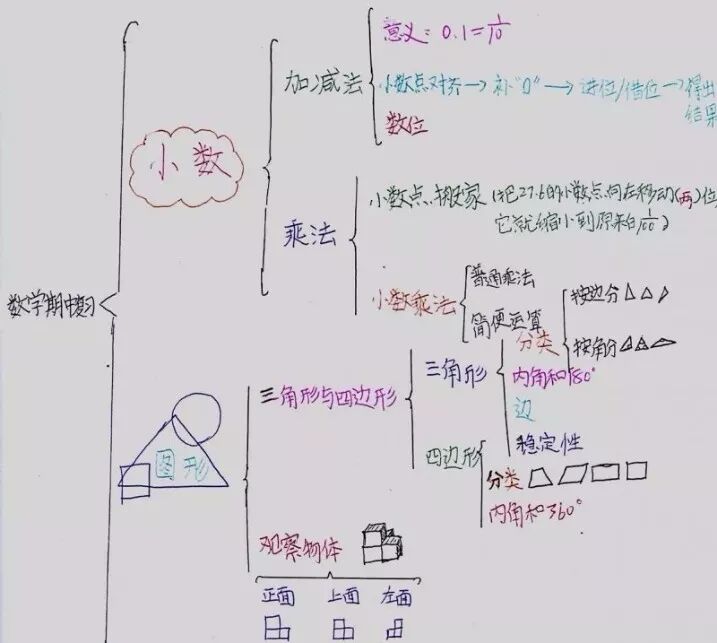 意义：0.1=1/10
加减法
小数点对齐→补"0"→进位/借位→得出
结果
数位
小数
小数点搬家（把27.6的小数点向左移动(两)位
它就缩小到原来的1/100）
乘法
小数乘法
普通乘法
简便运算
数学期中复习
三角形与四边形
三角形
分类
按边分
按角分
内角和180°
边
稳定性
四边形
分类
内角和360°
图形
观察物体
正面 上面 左面